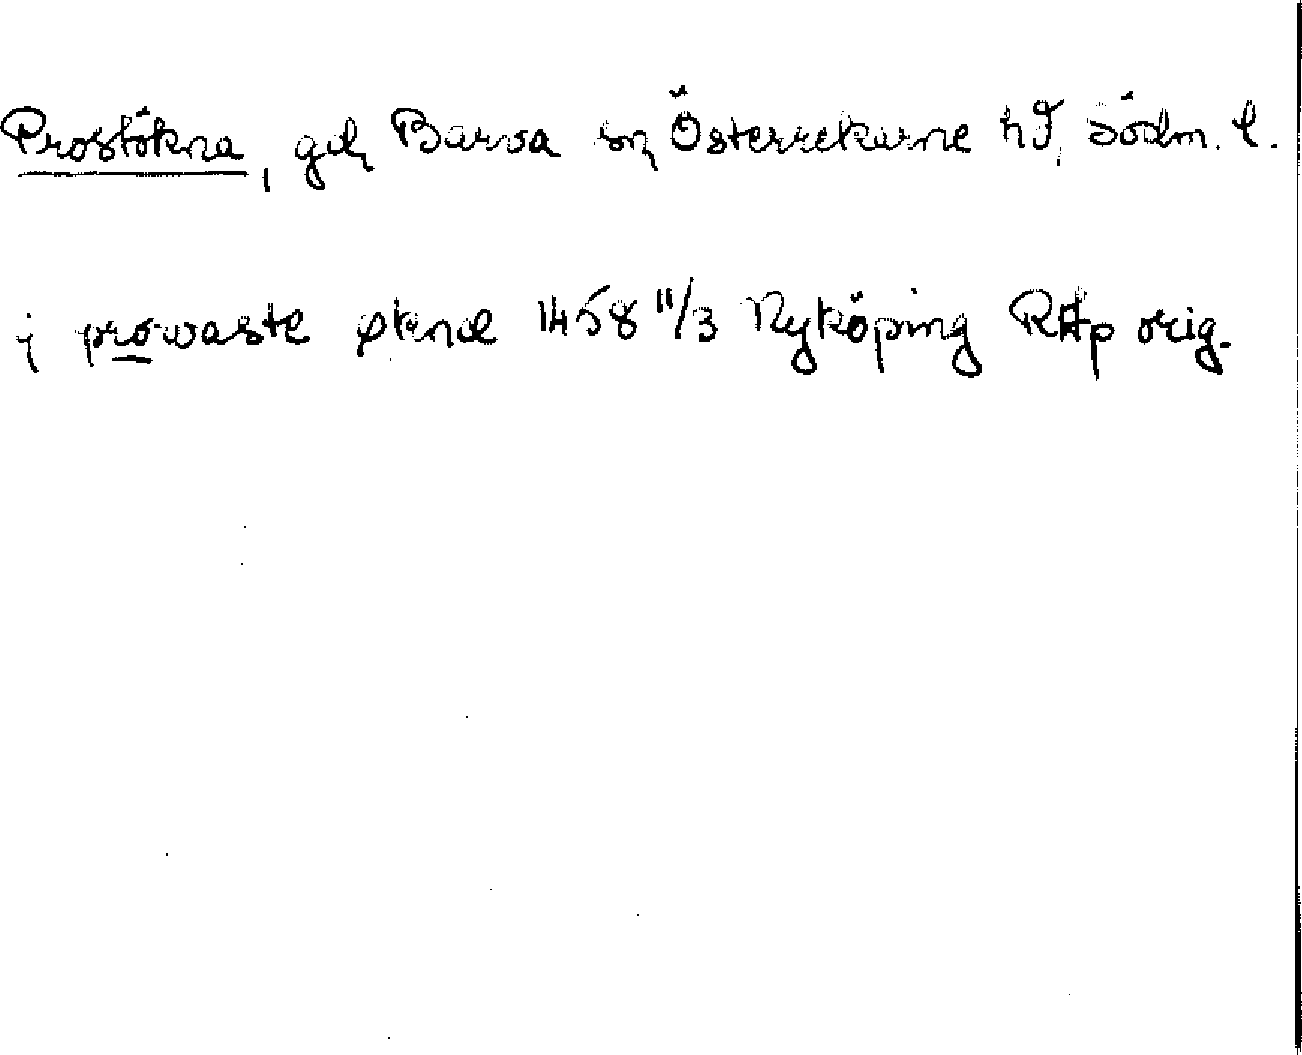 Prostökna, gd, Barva sn, Österrekarne hd, Södm. l.
j prowaste økne 1458 11/3 Nyköping RAp orig.